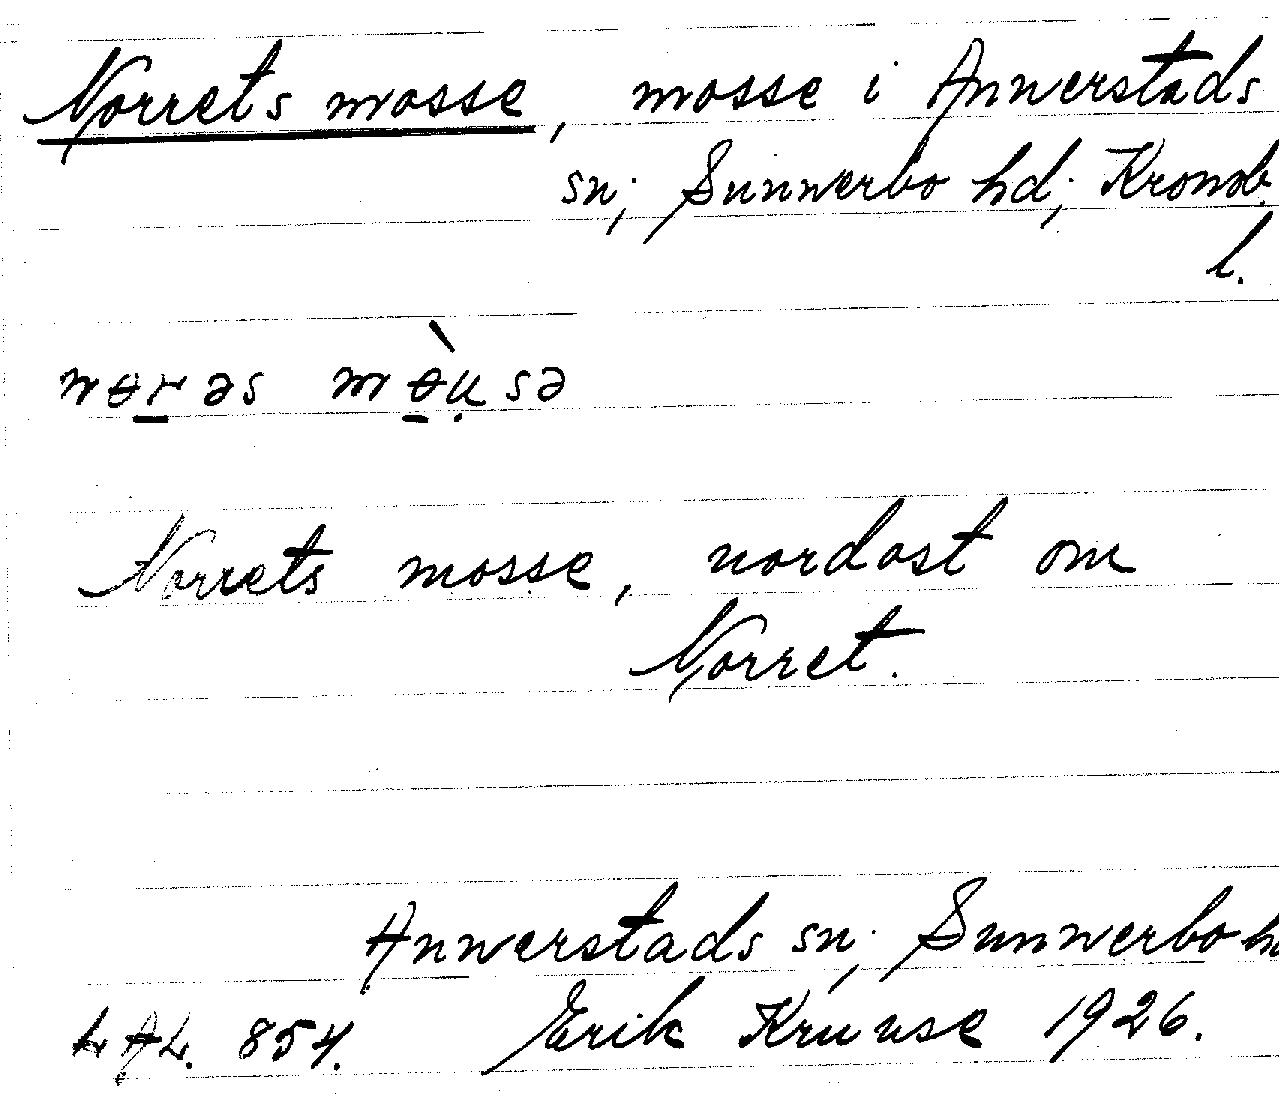 Norrets mosse, mosse i Annerstads
sn; Sunnerbo hd; Kronob.
l.
nɵr əs mɵ̀ụsə
Norrets mosse, nordost om
Norret.
Annerstads sn; Sunnerbo hd
LAL. 854. Erik Kruuse 1926.